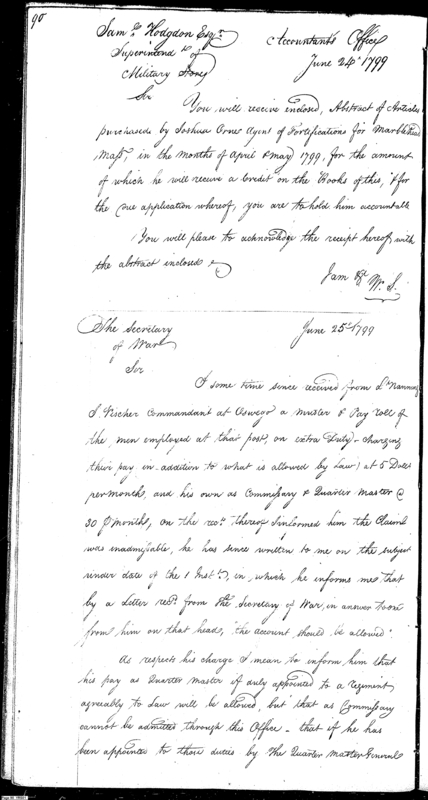 90
Saml. Hodgdon Esqr.
Accountants Office
Superintendt. of
June 24th 1799
Military Stores
Sir
You will receive enclosed, Abstract of Articles
purchased by Joshua Orne Agent of Fortifications for Marblehead
Masst. in the months of April & May 1799, for the amount
of which he will receive a Credit on the Books of this, & for
the due application whereof, you are to hold him accountable
You will please to acknowledge the receipt hereof with
the abstract enclosed
I am &c W. S.
The Secretary
June 25th 1799
of War
Sir
I some time since received from Lt. Nanning
J. Vischer Commandant at Oswego a Muster & Pay Roll of
the men employed at that post, on extra Duty - charging
their pay in addition to what is allowed by Law) at 5 Dolls
per months, and his own as Commissary & Quarter Master @
30 p months, on the rect. thereof I informed him the Claim
was inadmissable, he has since written to me on the subject
under date of the 1 Inst. in, which he informs me that
by a Letter recd. from the Secretary of War, in answer to one
from him on that heads, "the account should be allowed".
As respects his charge I mean to inform him that
his pay as Quarter Master if duly appointed to a regiment
agreeably to Law will be allowed, but that as Commissary
cannot be admitted through this Office - that if he has
been appointed to those duties by the Quarter Master General